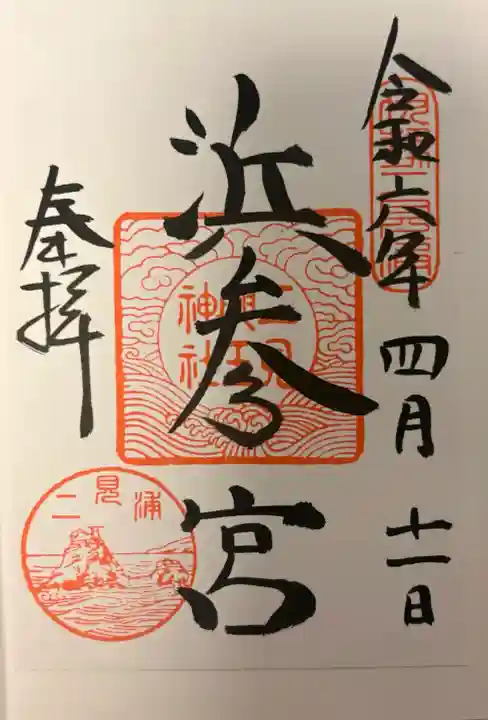 令和六年四月十一日
浜参宮
二見興玉神社
奉拝
二見浦